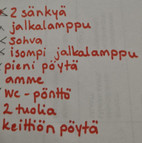 x 2 sänkyä
x jalkalamppu
x sohva
x isompi jalkalamppu
pieni pöytä
amme
wc-pönttö
2 tuolia
keittiön pöytä